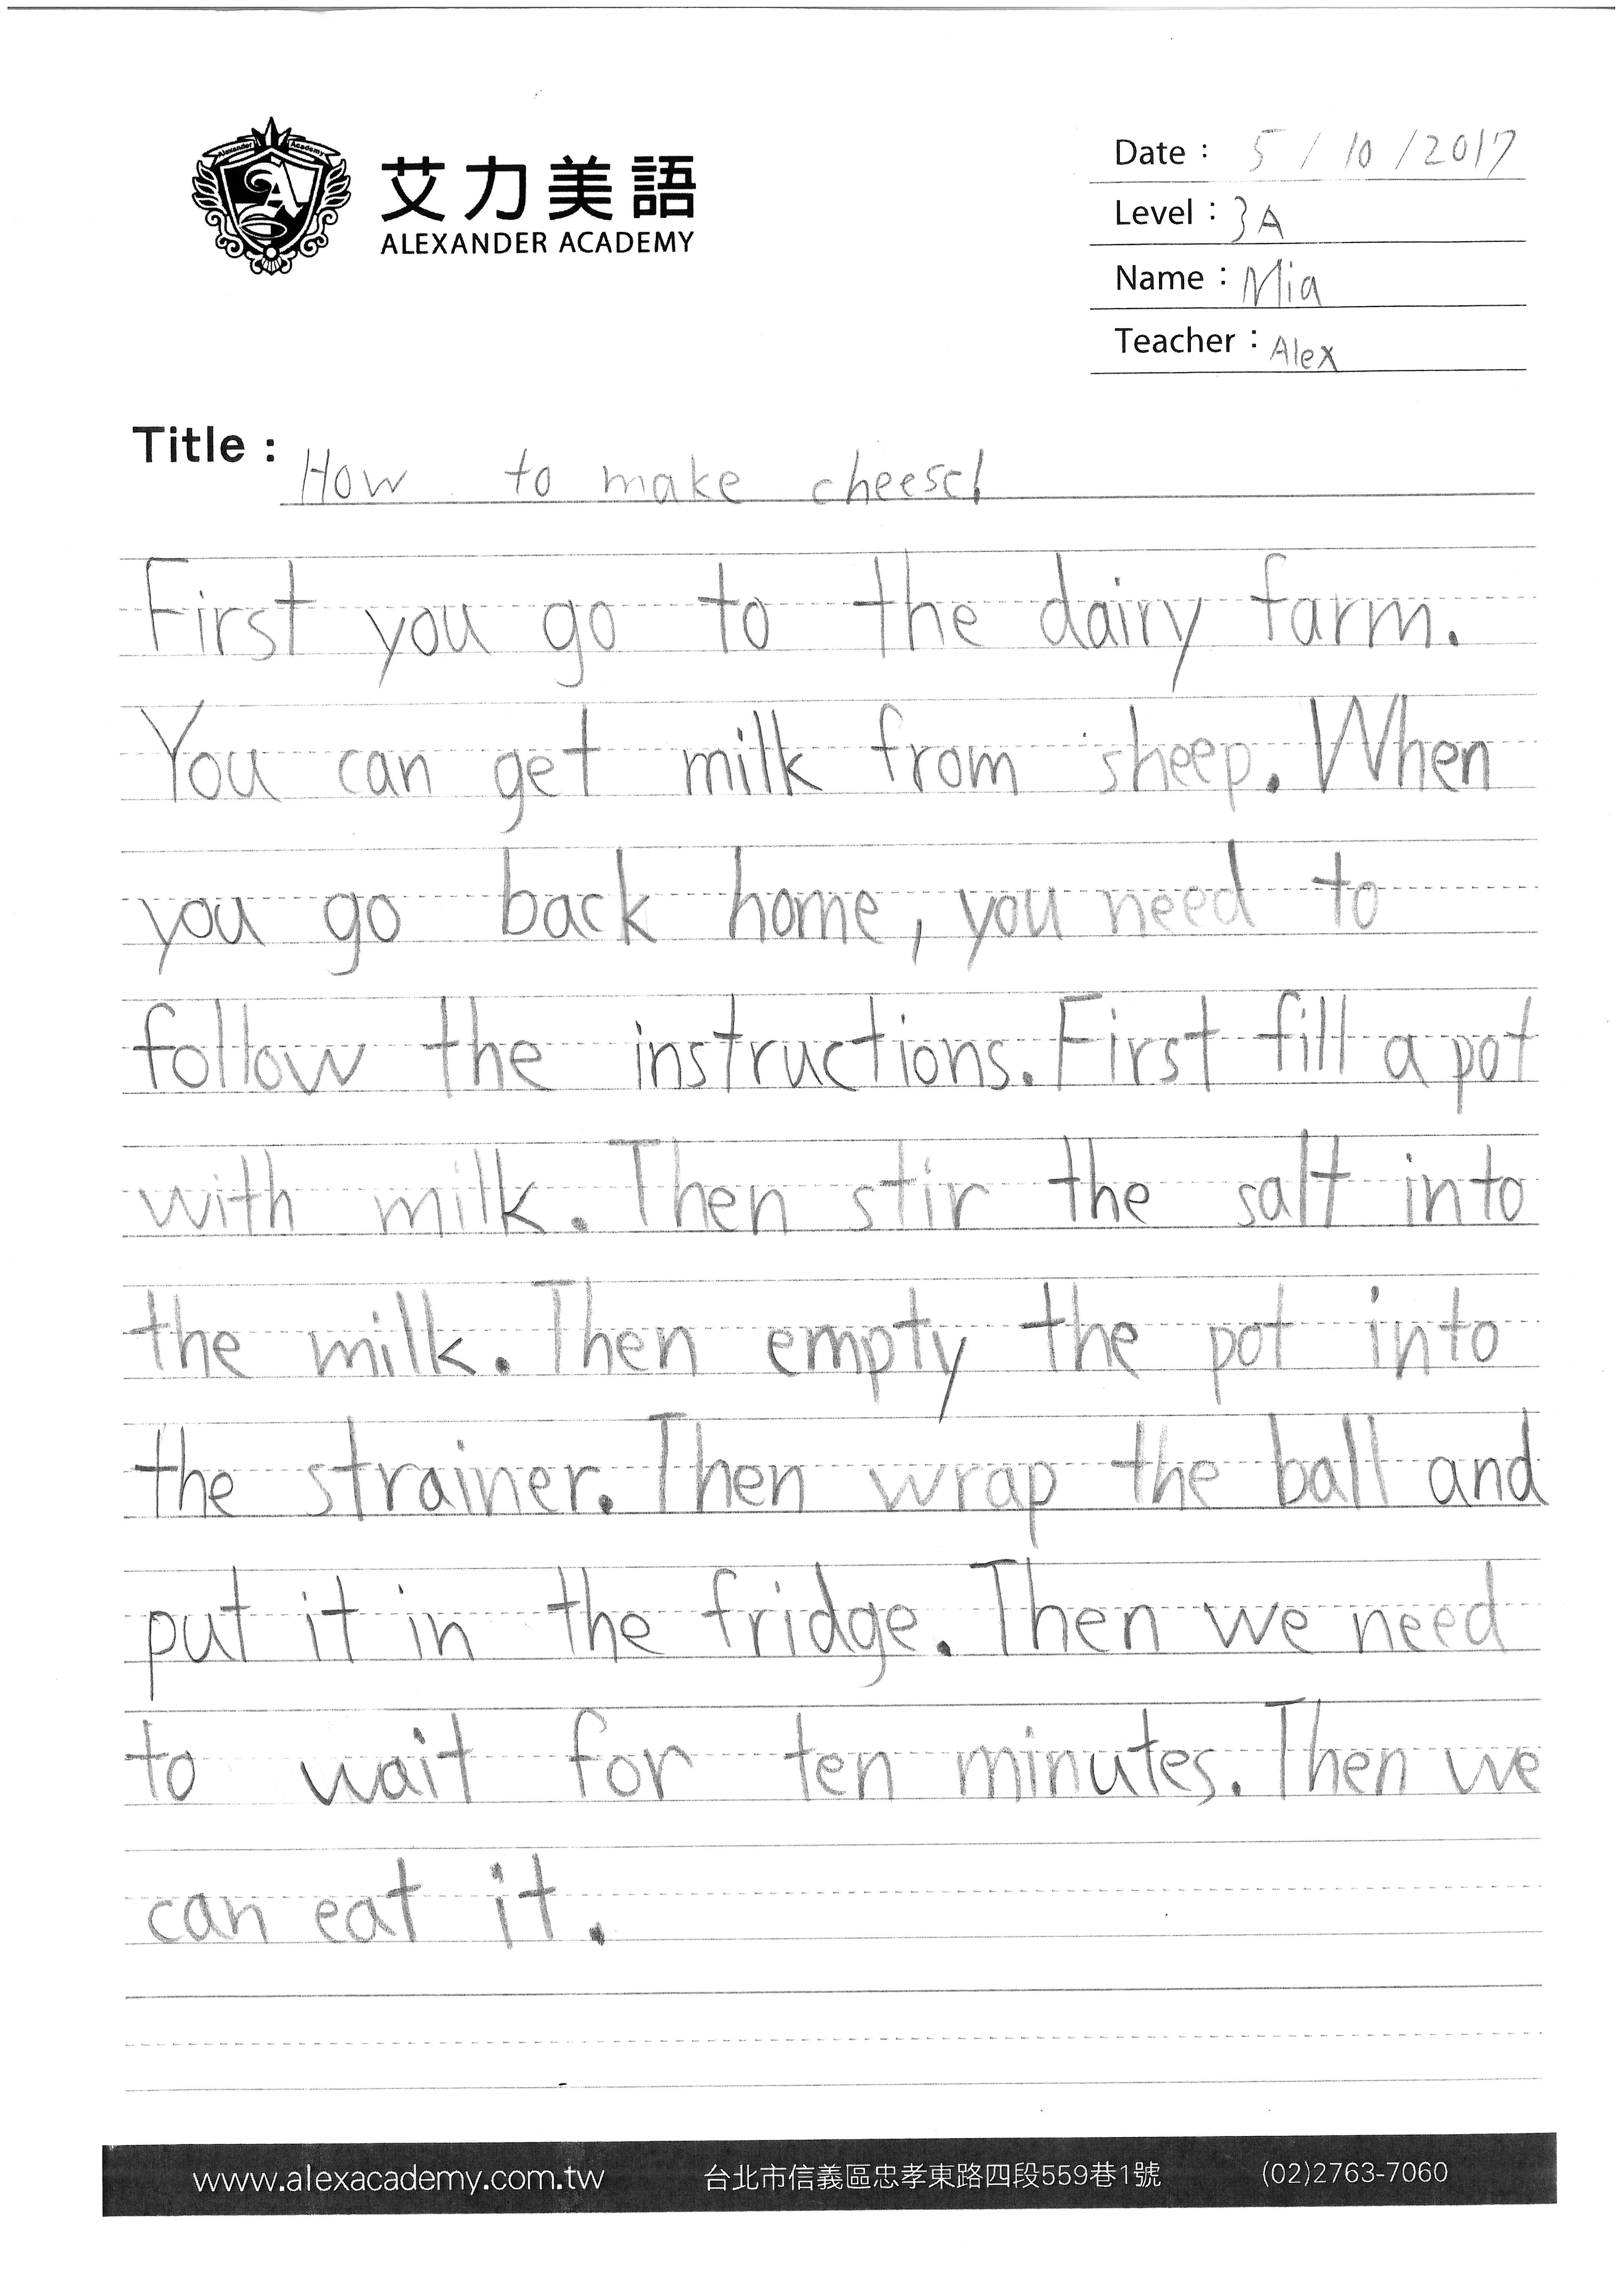 Alexander Academy
艾力美語
ALEXANDER ACADEMY
Date : 5 / 10 / 2017
Level : 3A
Name : Mia
Teacher : Alex
Title : How to make cheese!
First you go to the dairy farm.
You can get milk from sheep. When
you go back home, you need to
follow the instructions. First fill a pot
with milk. Then stir the salt into
the milk. Then empty the pot into
the strainer. Then wrap the ball and
put it in the fridge. Then we need
to wait for ten minutes. Then we
can eat it.
www.alexacademy.com.tw 台北市信義區忠孝東路四段559巷1號 (02)2763-7060